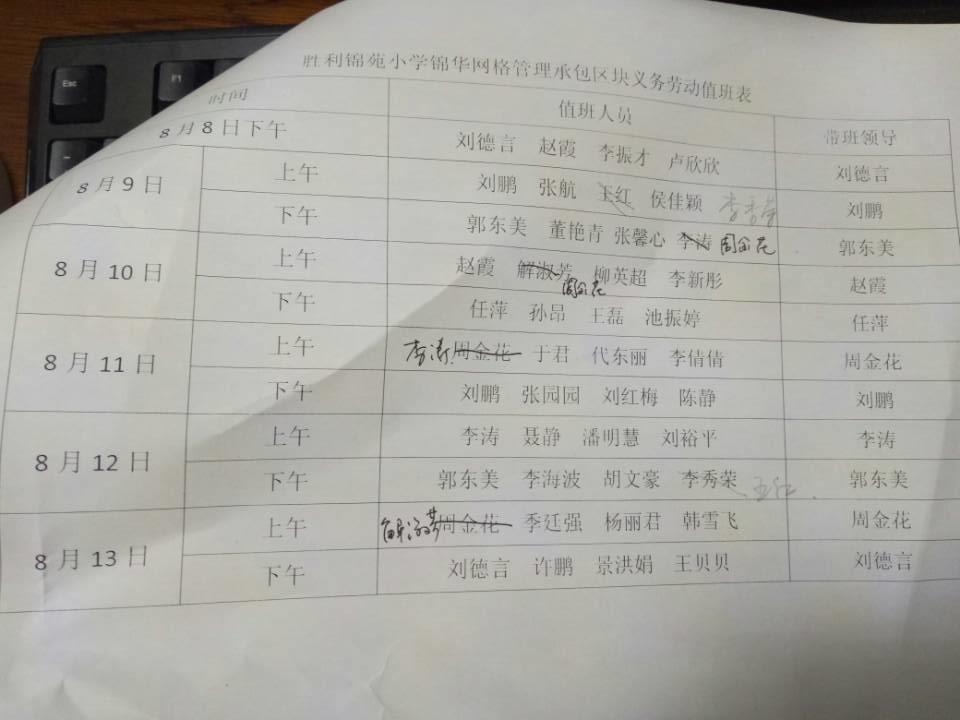 Esc
F1
胜利锦苑小学锦华网格管理承包区块义务劳动值班表
时间 值班人员 带班领导
8月8日下午 刘德言 赵霞 李振才 卢欣欣 刘德言
8月9日 上午 刘鹏 张航 王红 侯佳颖 李秀荣 刘鹏
下午 郭东美 董艳青 张馨心 李涛 周金花 郭东美
8月10日 上午 赵霞 解淑芳 柳英超 李新彤 赵霞
周金花
下午 任萍 孙昂 王磊 池振婷 任萍
8月11日 上午 李涛 周金花 于君 代东丽 李倩倩 周金花
下午 刘鹏 张园园 刘红梅 陈静 刘鹏
8月12日 上午 李涛 聂静 潘明慧 刘裕平 李涛
下午 郭东美 李海波 胡文豪 李秀荣 王红 郭东美
8月13日 上午 解淑芳 周金花 季廷强 杨丽君 韩雪飞 周金花
下午 刘德言 许鹏 景洪娟 王贝贝 刘德言